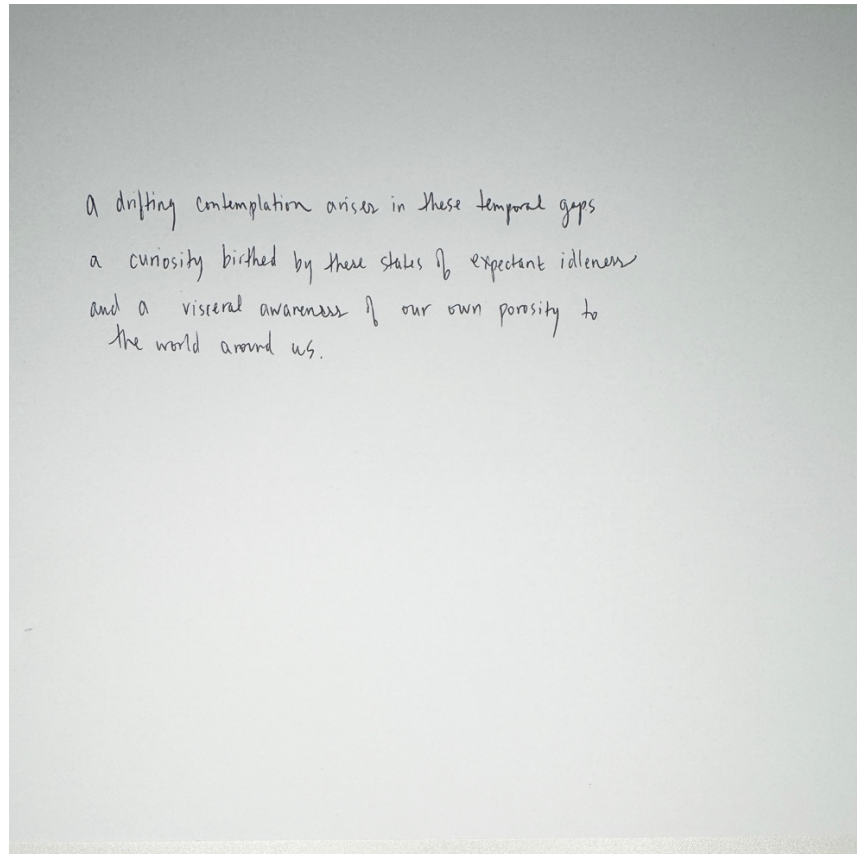 a drifting contemplation arises in these temporal gaps
a curiosity birthed by these states of expectant idleness
and a visceral awareness of our own porosity to
the world around us.